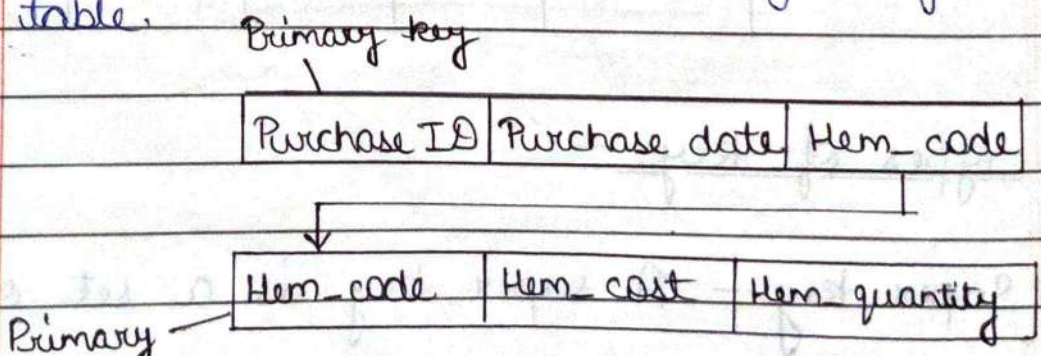 table.
Primary key
Purchase ID Purchase date Item_code
Item_code Item_cost Item_quantity
Primary